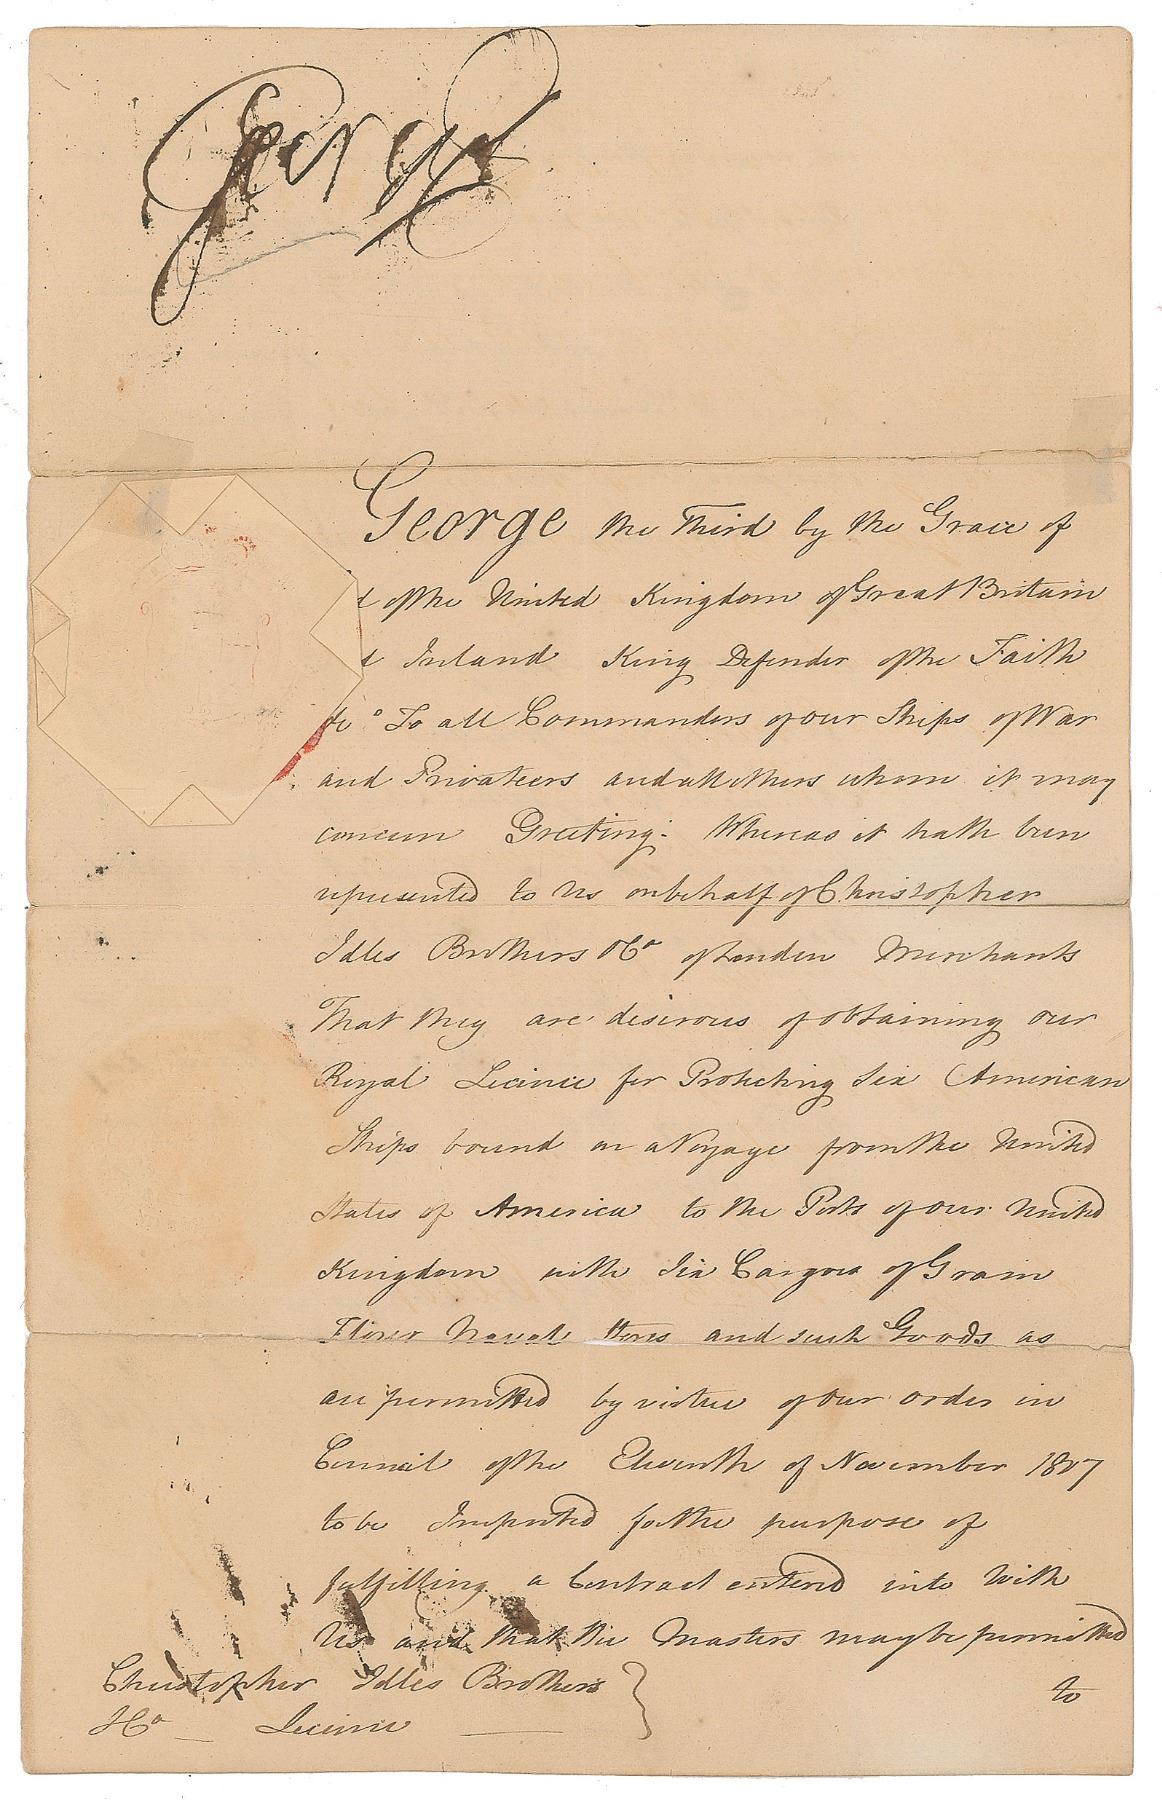 George
George the Third by the Grace of
d of the United Kingdom of Great Britain
d Ireland King Defender of the Faith
&c To all Commanders of our Ships of War
and Privateers and all others whom it may
concern Greeting: Whereas it hath been
represented to Us on behalf of Christopher
Idles Brothers & Co of London Merchants
That they are desirous of obtaining our
Royal Licence for Protecting Six American
Ships bound on a Voyage from the United
States of America to the Ports of our United
Kingdom with Six Cargoes of Grain
Flour Naval Stores and such Goods as
are permitted by virtue of our order in
Council of the Eleventh of November 1807
to be Imported for the purpose of
fulfilling a Contract entered into with
Us and that the Masters may be permitted
to
Christopher Idles Brothers
& Co Licence